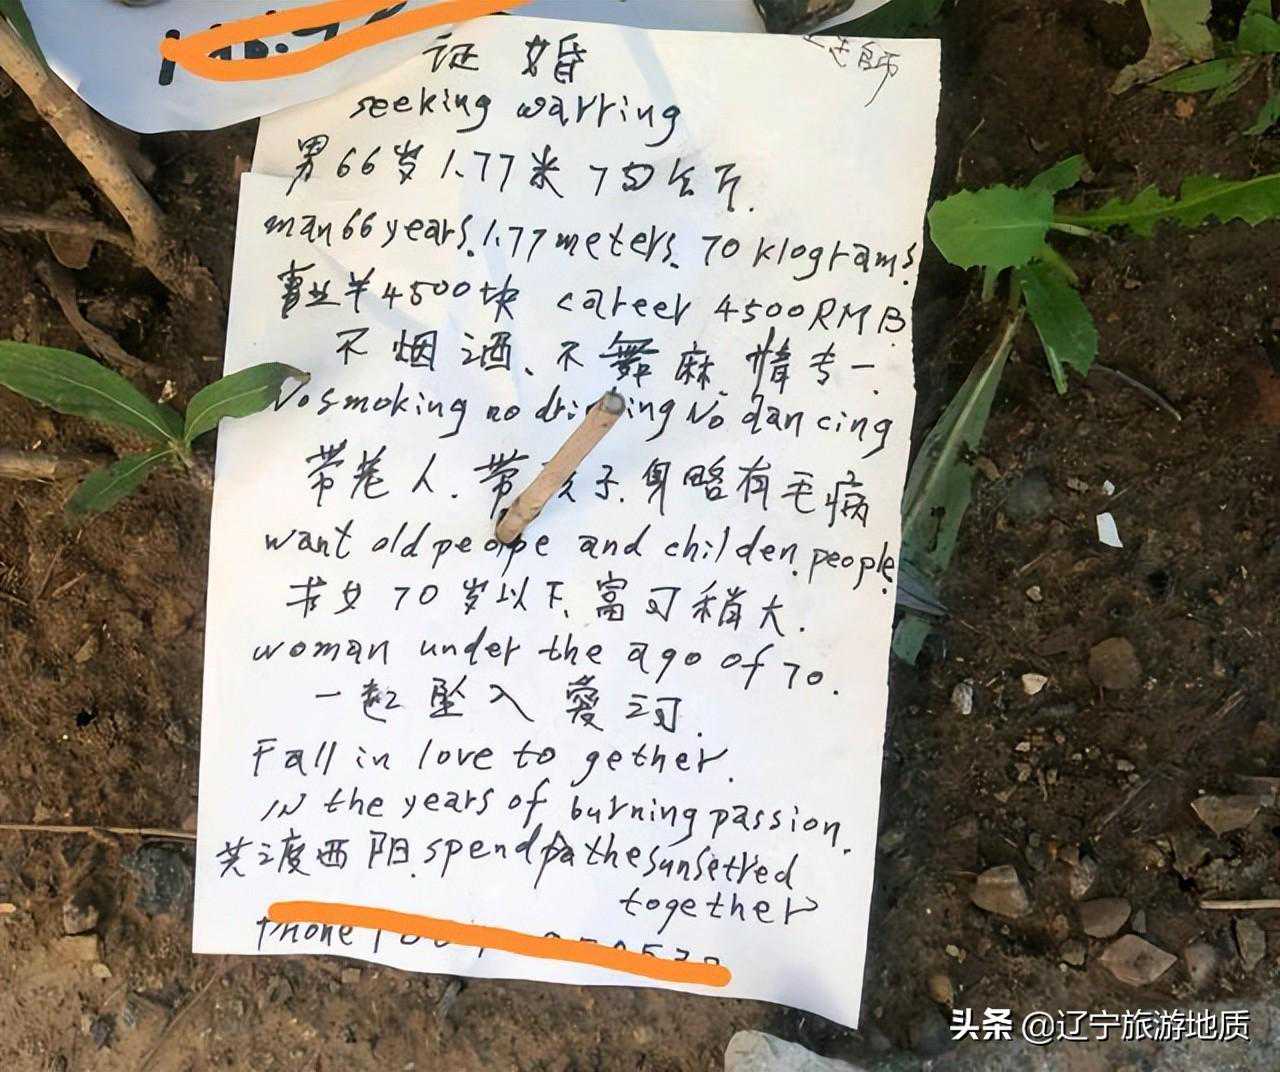 证婚
seeking warring
男66岁1.77米70公斤.
man66years.1.77meters.70klograms.
事业半4500块 career 4500RMB
不烟酒、不舞麻.情专一.
No smoking no dri ing No dancing
带老人.带孩子.身略有毛病
want old people and childen.people.
求女70岁以下.富可稍大.
woman under the ago of 70.
一起坠入爱河.
Fall in love to gether.
IN the years of burning passion.
共渡西阳.spend the sunsetred
together
phone
头条 @辽宁旅游地质